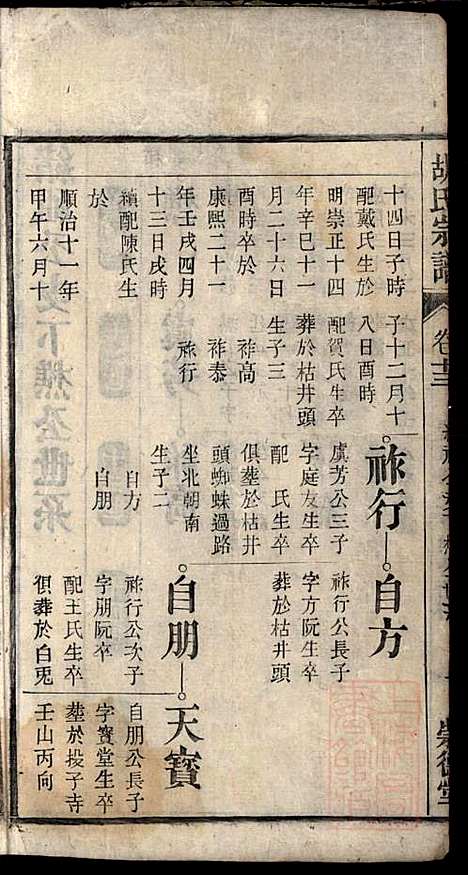 胡氏宗譜
卷十三
崇德堂
十四日子時
配戴氏生於
明崇正十四
年辛巳十一
月二十六日
酉時卒於
康熙二十一
年壬戌四月
十三日戌時
續配陳氏生
於
順治十一年
甲午六月十
子十二月十
八日酉時
配賀氏生卒
葬於枯井頭
生子三
祚高
祚泰
祚行
祚行
虞芳公三子
字庭友生卒
配 氏生卒
俱塟於枯井
頭蜘蛛過路
坐北朝南
生子二
自方
自朋
自方
祚行公長子
字方阮生卒
葬於枯井頭
自朋
祚行公次子
字朋阮卒
配王氏生卒
俱葬於白兎
天寳
自朋公長子
字寳堂生卒
塟於投子寺
壬山丙向